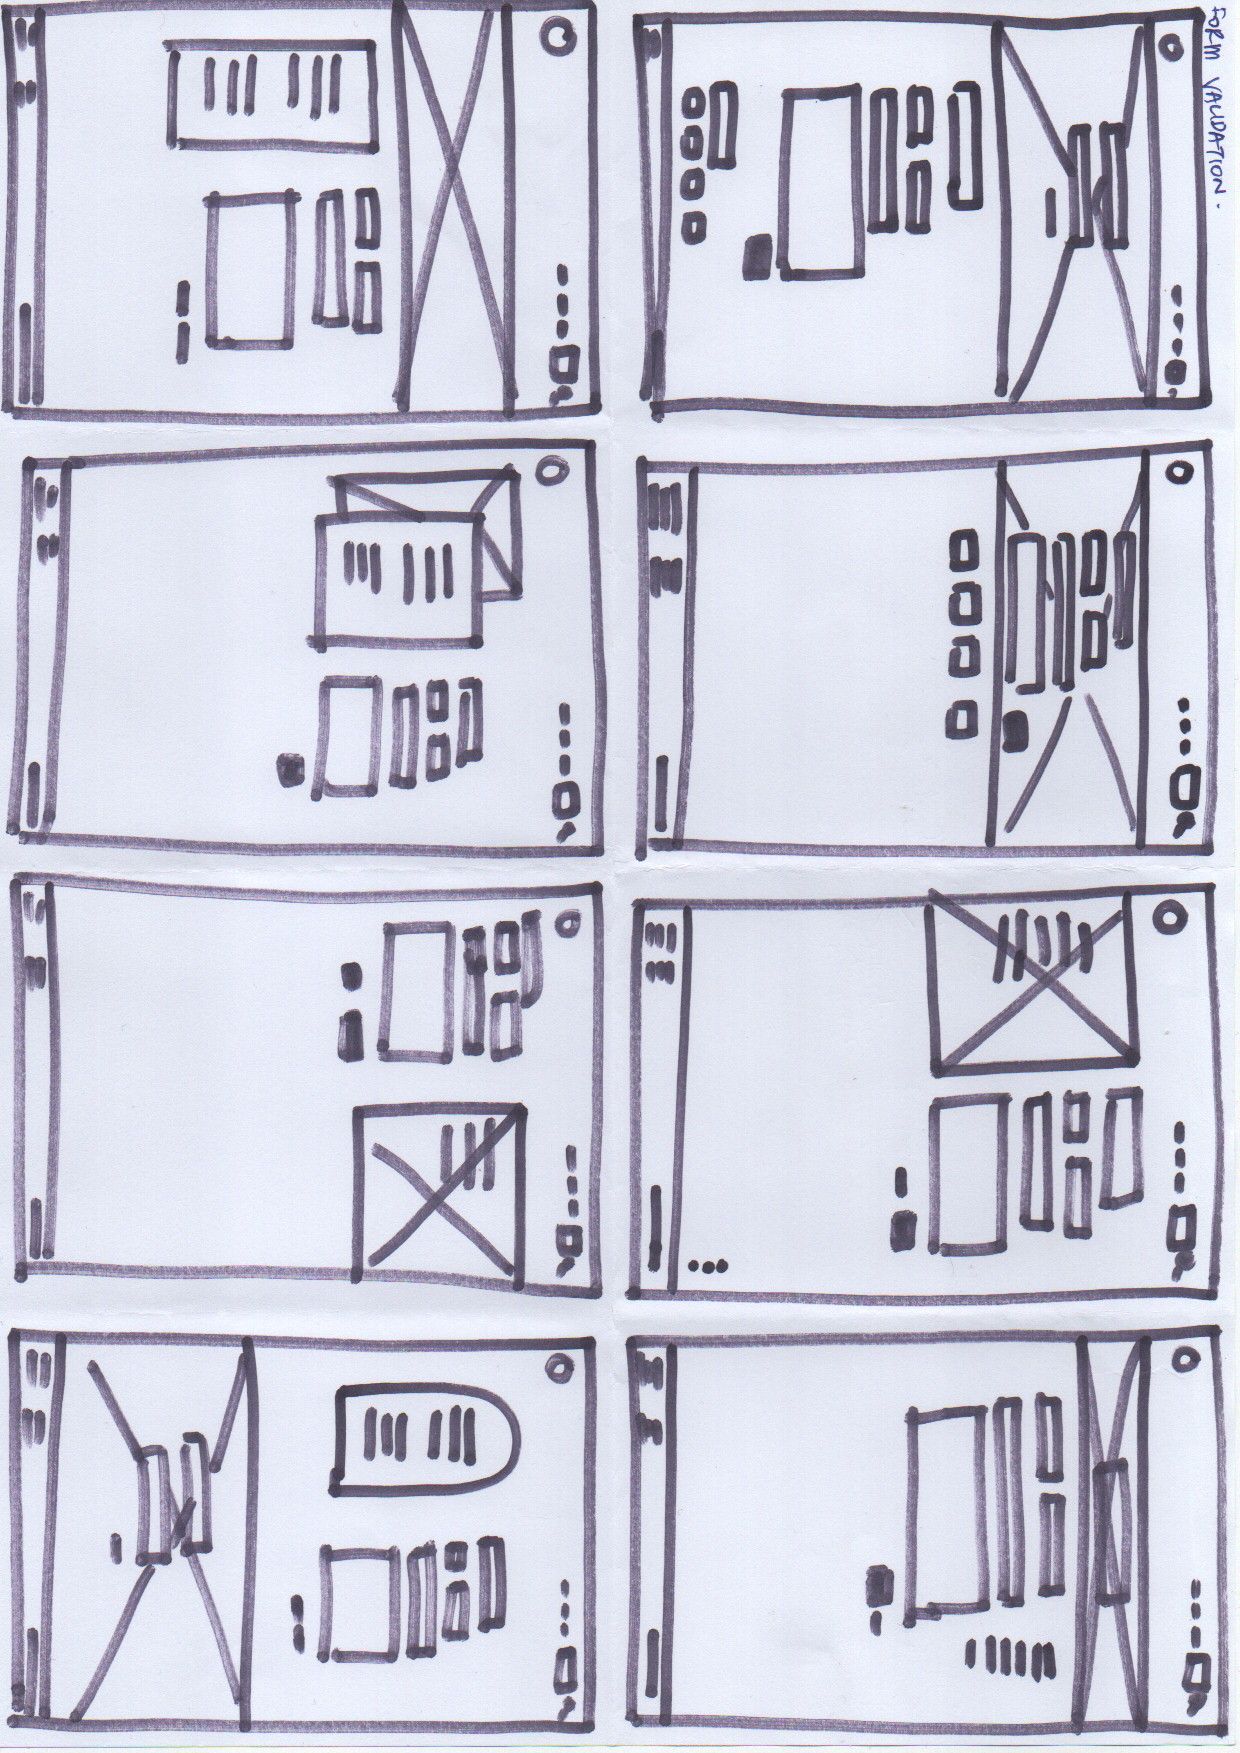 FORM VALIDATION.